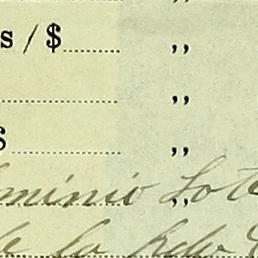 s / $ ,,
,,
s ,,
minio Lote
de la